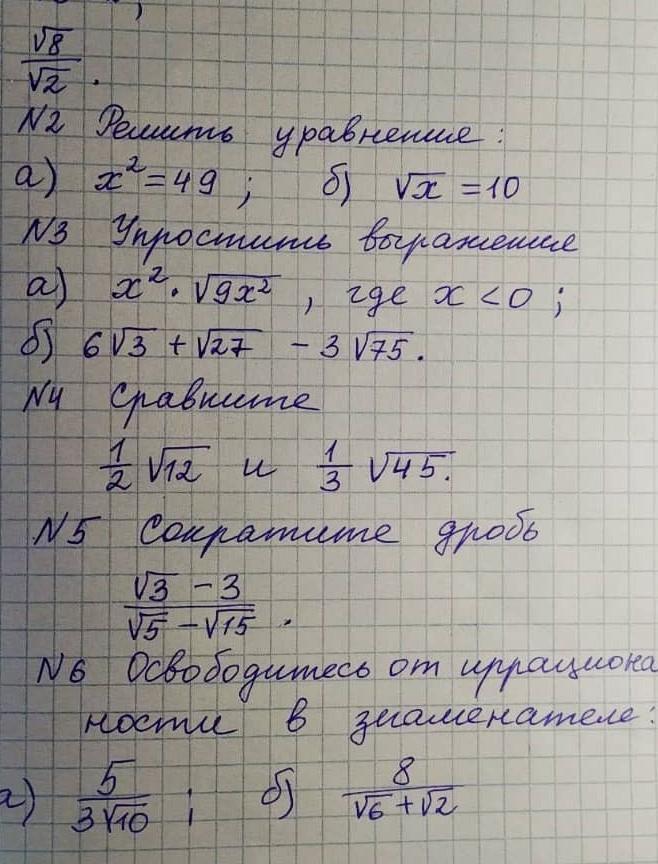 √8/√2 .
N2 Решить уравнения :
а) x² = 49 ; б) √x = 10
N3 Упростить выражения
а) x² · √9x² , где x < 0 ;
б) 6√3 + √27 - 3√75 .
N4 Сравните
1/2 √12 и 1/3 √45 .
N5 Сократите дробь
(√3 - 3)/(√5 - √15) .
N6 Освободитесь от иррациона
ности в знаменателе :
а) 5/(3√10) ; б) 8/(√6 + √2)